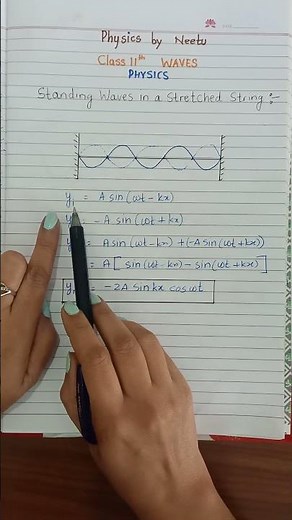 Physics by Neetu
Class 11th WAVES
PHYSICS
Standing Waves in a Stretched String :-
y₁ = A sin (ωt - kx)
y = - A sin (ωt + kx)
y = A sin (ωt - kx) + (-A sin (ωt + kx))
= A [ sin (ωt - kx) - sin (ωt + kx) ]
y = -2A sin kx cos ωt